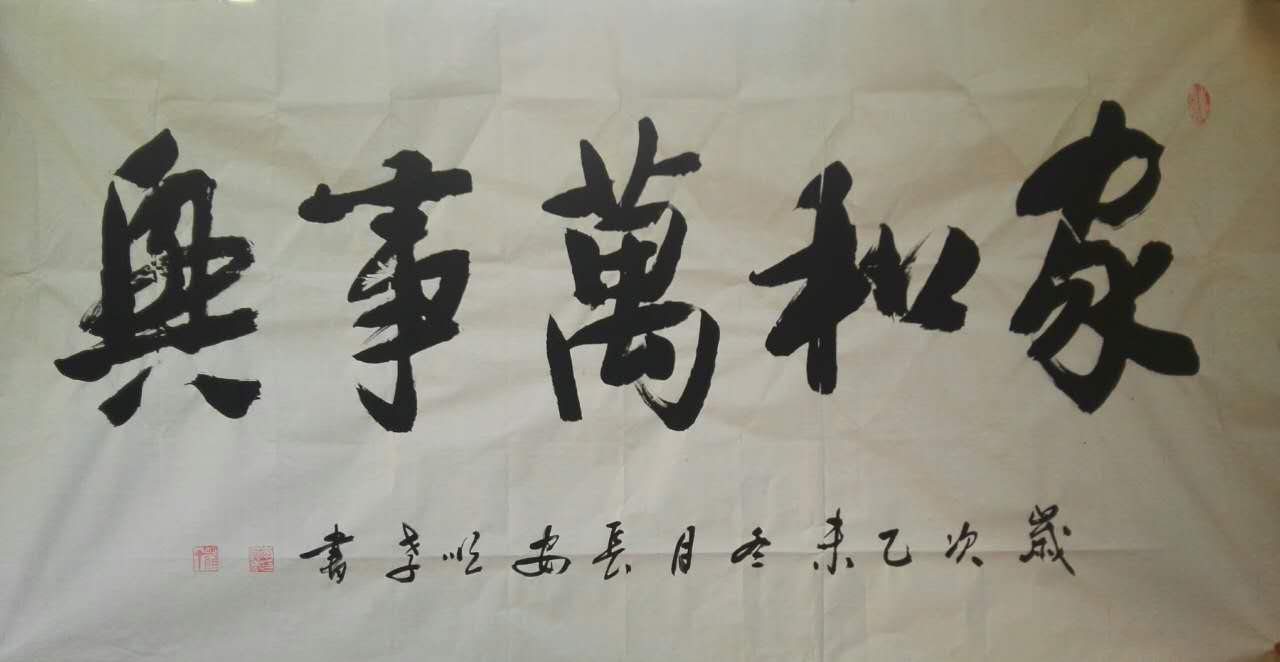 家和萬事興
歲次乙未冬月長安順孝書